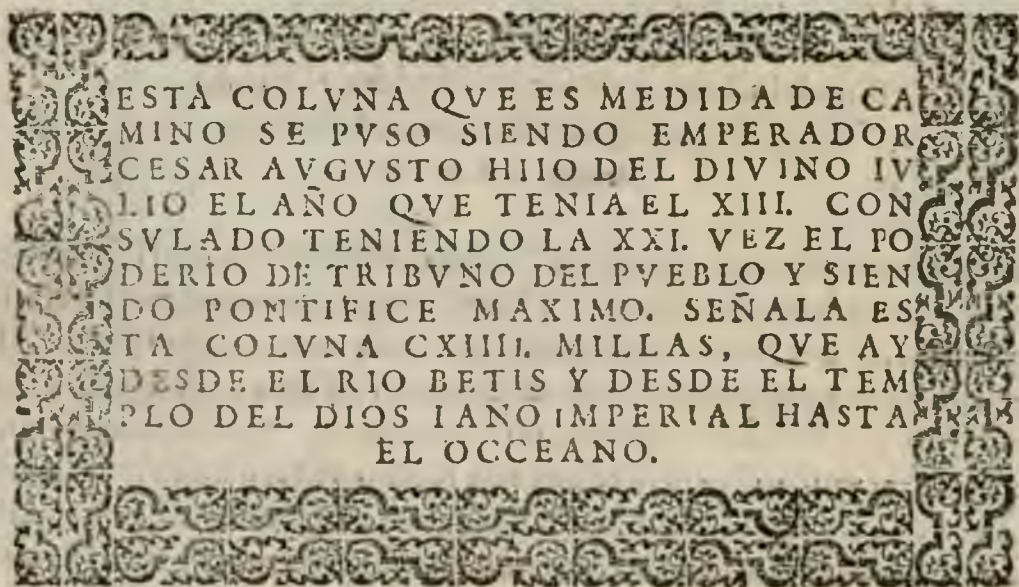 ESTA COLVNA QVE ES MEDIDA DE CA
MINO SE PVSO SIENDO EMPERADOR
CESAR AVGVSTO HIIO DEL DIVINO IV
LIO EL AÑO QVE TENIA EL XIII. CON
SVLADO TENIENDO LA XXI. VEZ EL PO
DERIO DE TRIBVNO DEL PVEBLO Y SIEN
DO PONTIFICE MAXIMO. SEÑALA ES
TA COLVNA CXIIII. MILLAS, QVE AY
DESDE EL RIO BETIS Y DESDE EL TEM
PLO DEL DIOS IANO IMPERIAL HASTA
EL OCCEANO.